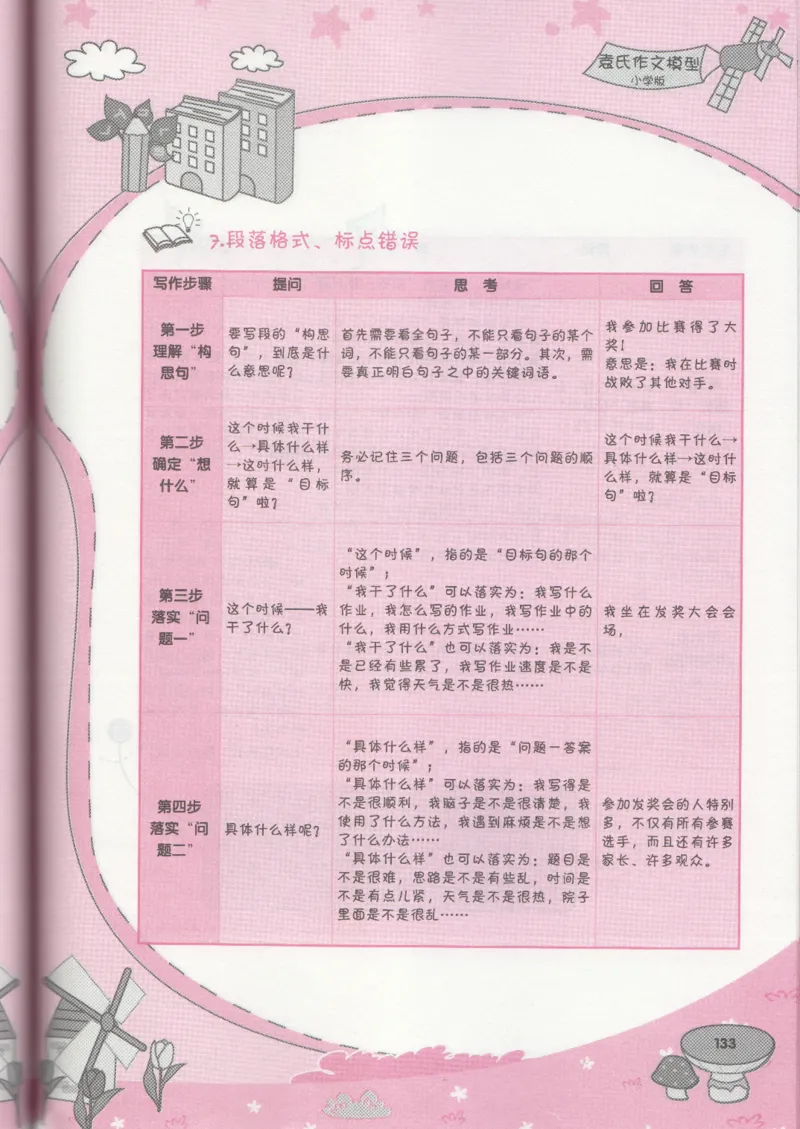 袁氏作文模型
小学版
7.段落格式、标点错误
写作步骤
提问
思 考
回 答
第一步
理解“构
思句”
要写段的“构思
句”，到底是什
么意思呢？
首先需要看全句子，不能只看句子的某个
词，不能只看句子的某一部分。其次，需
要真正明白句子之中的关键词语。
我参加比赛得了大
奖！
意思是：我在比赛时
战败了其他对手。
第二步
确定“想
什么”
这个时候我干什
么→具体什么样
→这时什么样，
就算是“目标
句”啦？
务必记住三个问题，包括三个问题的顺
序。
这个时候我干什么→
具体什么样→这时什
么样，就算是“目标
句”啦？
第三步
落实“问
题一”
这个时候——我
干了什么？
“这个时候”，指的是“目标句的那个
时候”；
“我干了什么”可以落实为：我写什么
作业，我怎么写的作业，我写作业中的
什么，我用什么方式写作业……
“我干了什么”也可以落实为：我是不
是已经有些累了，我写作业速度是不是
快，我觉得天气是不是很热……
我坐在发奖大会会
场，
第四步
落实“问
题二”
具体什么样呢？
“具体什么样”，指的是“问题一答案
的那个时候”；
“具体什么样”可以落实为：我写得是
不是很顺利，我脑子是不是很清楚，我
使用了什么方法，我遇到麻烦是不是想
了什么办法……
“具体什么样”也可以落实为：题目是
不是很难，思路是不是有些乱，时间是
不是有点儿紧，天气是不是很热，院子
里面是不是很乱……
参加发奖会的人特别
多，不仅有所有参赛
选手，而且还有许多
家长、许多观众。
133